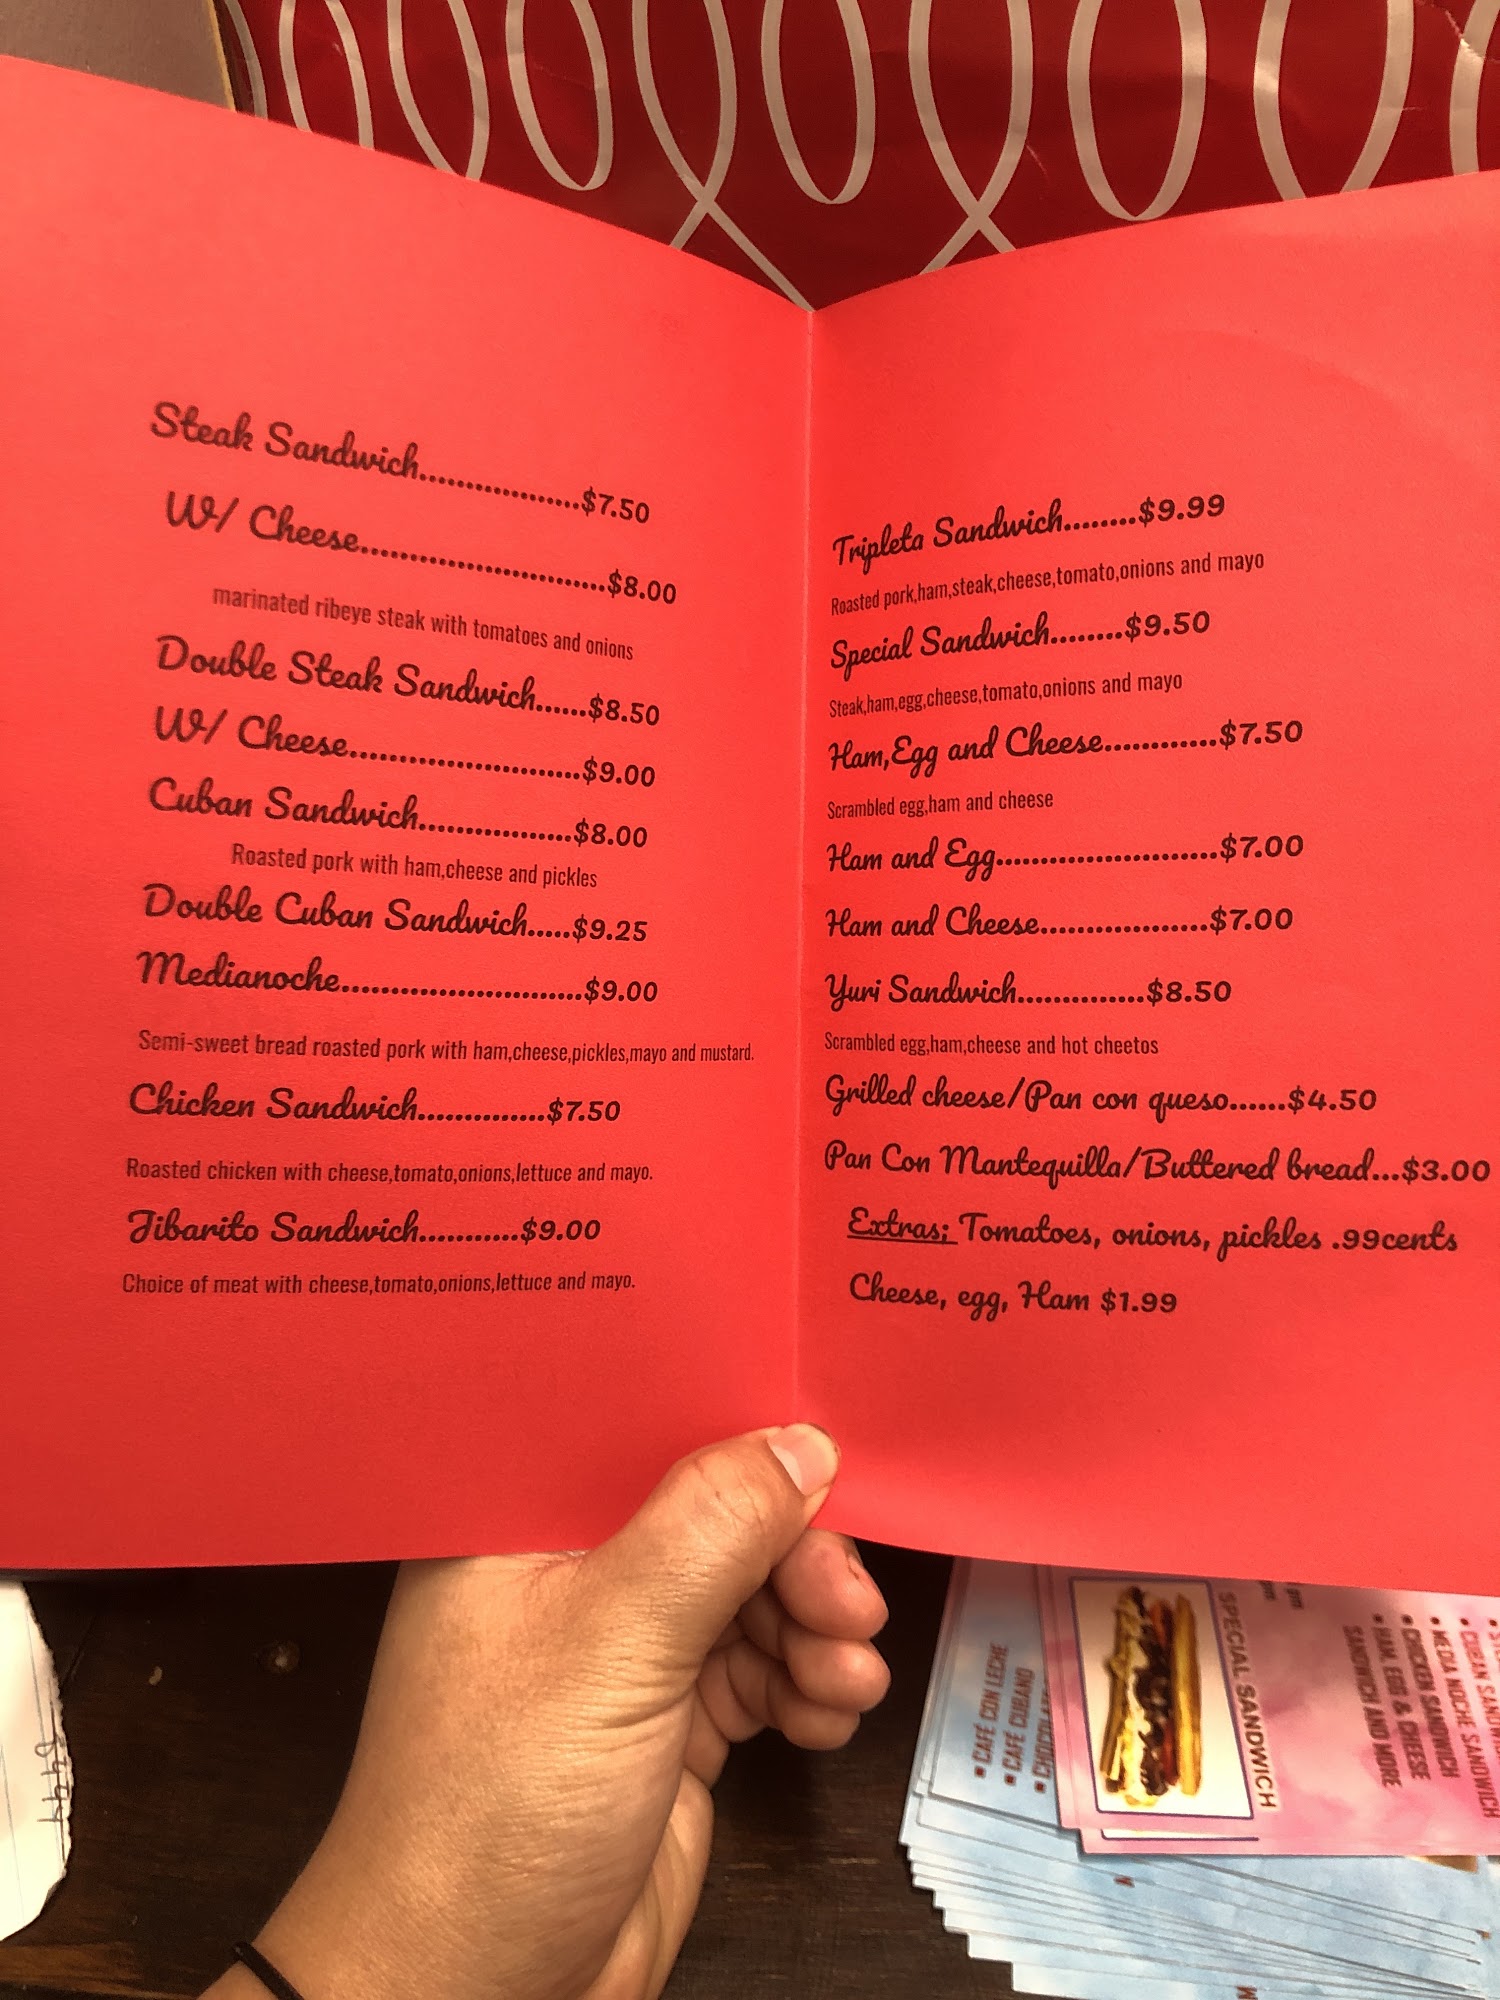 Steak Sandwich...................$7.50
W/ Cheese.............................$8.00
marinated ribeye steak with tomatoes and onions
Double Steak Sandwich......$8.50
W/ Cheese............................$9.00
Cuban Sandwich..................$8.00
Roasted pork with ham,cheese and pickles
Double Cuban Sandwich.....$9.25
Medianoche.............................$9.00
Semi-sweet bread roasted pork with ham,cheese,pickles,mayo and mustard.
Chicken Sandwich.............$7.50
Roasted chicken with cheese,tomato,onions,lettuce and mayo.
Jibarito Sandwich...........$9.00
Choice of meat with cheese,tomato,onions,lettuce and mayo.
Tripleta Sandwich........$9.99
Roasted pork,ham,steak,cheese,tomato,onions and mayo
Special Sandwich........$9.50
Steak,ham,egg,cheese,tomato,onions and mayo
Ham,Egg and Cheese............$7.50
Scrambled egg,ham and cheese
Ham and Egg..........................$7.00
Ham and Cheese...................$7.00
Yuri Sandwich..............$8.50
Scrambled egg,ham,cheese and hot cheetos
Grilled cheese/Pan con queso......$4.50
Pan Con Mantequilla/Buttered bread...$3.00
Extras; Tomatoes, onions, pickles .99cents
Cheese, egg, Ham $1.99
SPECIAL SANDWICH
• CUBAN SANDWICH
• MEDIA NOCHE SANDWICH
• CHICKEN SANDWICH
• HAM, EGG & CHEESE
SANDWICH AND MORE
• CAFÉ CON LECHE
• CAFÉ CUBANO